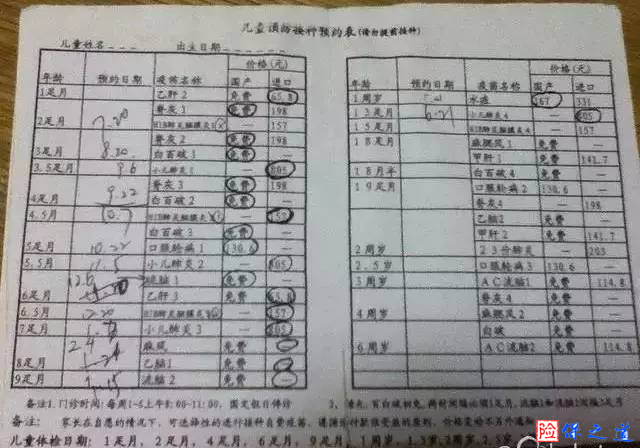 儿童预防接种预约表(请勿提前接种)
儿童姓名 出生日期
年龄 预约日期 疫苗名称 价格(元)
国产 进口
1足月 乙肝2 免费 65.8
脊灰1 免费 198
2足月 7.20 HIB肺炎脑膜炎1 — 157
脊灰2 免费 198
3足月 8.20 白百破1 免费 —
3.5足月 9.6 小儿肺炎1 — 805
脊灰3 免费 198
4足月 9.22 白百破2 免费 —
4.5月 10.7 HIB肺炎脑膜炎 — 157
白百破3 免费 —
5足月 10.22 口服轮病1 130.6 —
5.5月 小儿肺炎2 — 805
12.6 流脑1 免费 —
6足月 乙肝3 免费 65.8
6.5月 HIB肺炎脑膜炎 — 157
7足月 小儿肺炎3 — 805
2.4 麻风 免费 —
8足月 乙脑1 免费 —
9足月 流脑2 免费 —
年龄 预约日期 疫苗名称 价格(元)
国产 进口
1周岁 水痘 167 331
13足月 6.21 小儿肺炎4 — 805
15足月 HIB肺炎脑膜炎4 — 157
18足月 麻腮风1 免费 —
甲肝1 免费 141.7
18月半 白百破4 免费 —
19足月 口服轮病2 130.6 —
脊灰4 — 198
乙脑2 免费 —
甲肝2 免费 141.7
2周岁 23价肺炎 — 203
2.5岁 口服轮病3 130.6 —
3周岁 AC流脑1 免费 114.8
脊灰4 免费 —
4周岁 麻腮风2 免费 —
白破 免费 —
6周岁 AC流脑2 免费 114.8
备注1.门诊时间:每周1-5上午8:00-11:00,国定假日停诊
备注: 家长在自愿的情况下,可选择性的进行接种自费疫苗,
儿童体检日期:1足月,2足月,4足月,6足月,9足月,1周岁,1.5岁
险保之道